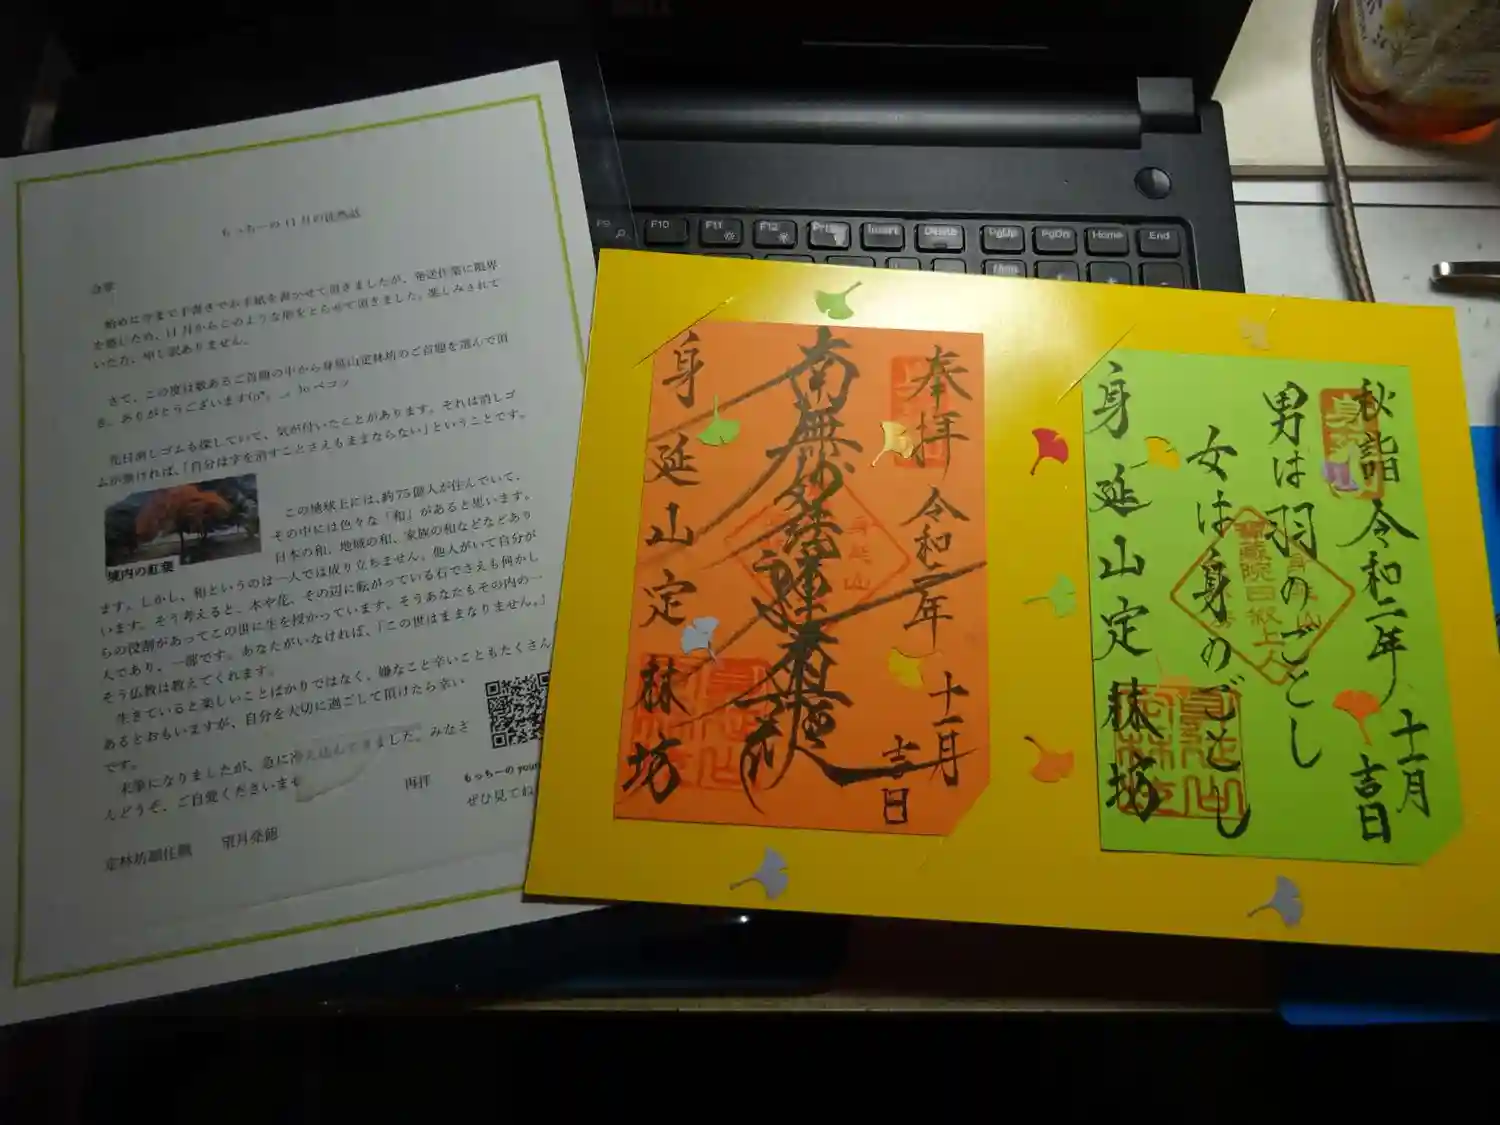 もっちーの 11 月の徒然話
合掌
始めに今まで手書きでお手紙を書かせて頂きましたが、発送作業に限界
を感じため、11 月からこのような形をとらせて頂きました。楽しみされて
いた方、申し訳ありません。
さて、この度は数あるご首題の中から身延山定林坊のご首題を選んで頂
き、ありがとうございます
先日消しゴムを探していて、気が付いたことがあります。それは消しゴ
ムが無ければ、「自分は字を消すことさえもままならない」ということです。
この地球上には、約 75 億人が住んでいて、
その中には色々な「和」があると思います。
日本の和、地域の和、家族の和などなどあり
境内の紅葉
ます。しかし、和というのは一人では成り立ちません。他人がいて自分が
います。そう考えると、木や花、その辺に転がっている石でさえも何かし
らの役割があってこの世に生を授かっています。そうあなたもその内の一
人であり、一部です。あなたがいなければ、「この世はままなりません。」
そう仏教は教えてくれます。
生きていると楽しいことばかりではなく、嫌なこと辛いこともたくさん
あるとおもいますが、自分を大切に過ごして頂けたら幸い
です。
末筆になりましたが、急に冷え込んできました。みなさ
んどうぞ、ご自愛くださいませ
再拝
もっちーの your
ぜひ見てね
定林坊副住職 望月
F9
F10
F11
F12
PrtSc
Insert
Delete
PgUp
PgDn
Home
End
奉拝 令和二年 十一月
吉日
南無妙法蓮華経
身延山定林坊
身延山
秋詣 令和二年 十一月
吉日
男は羽のごとし
女は身のごとし
身延山定林坊